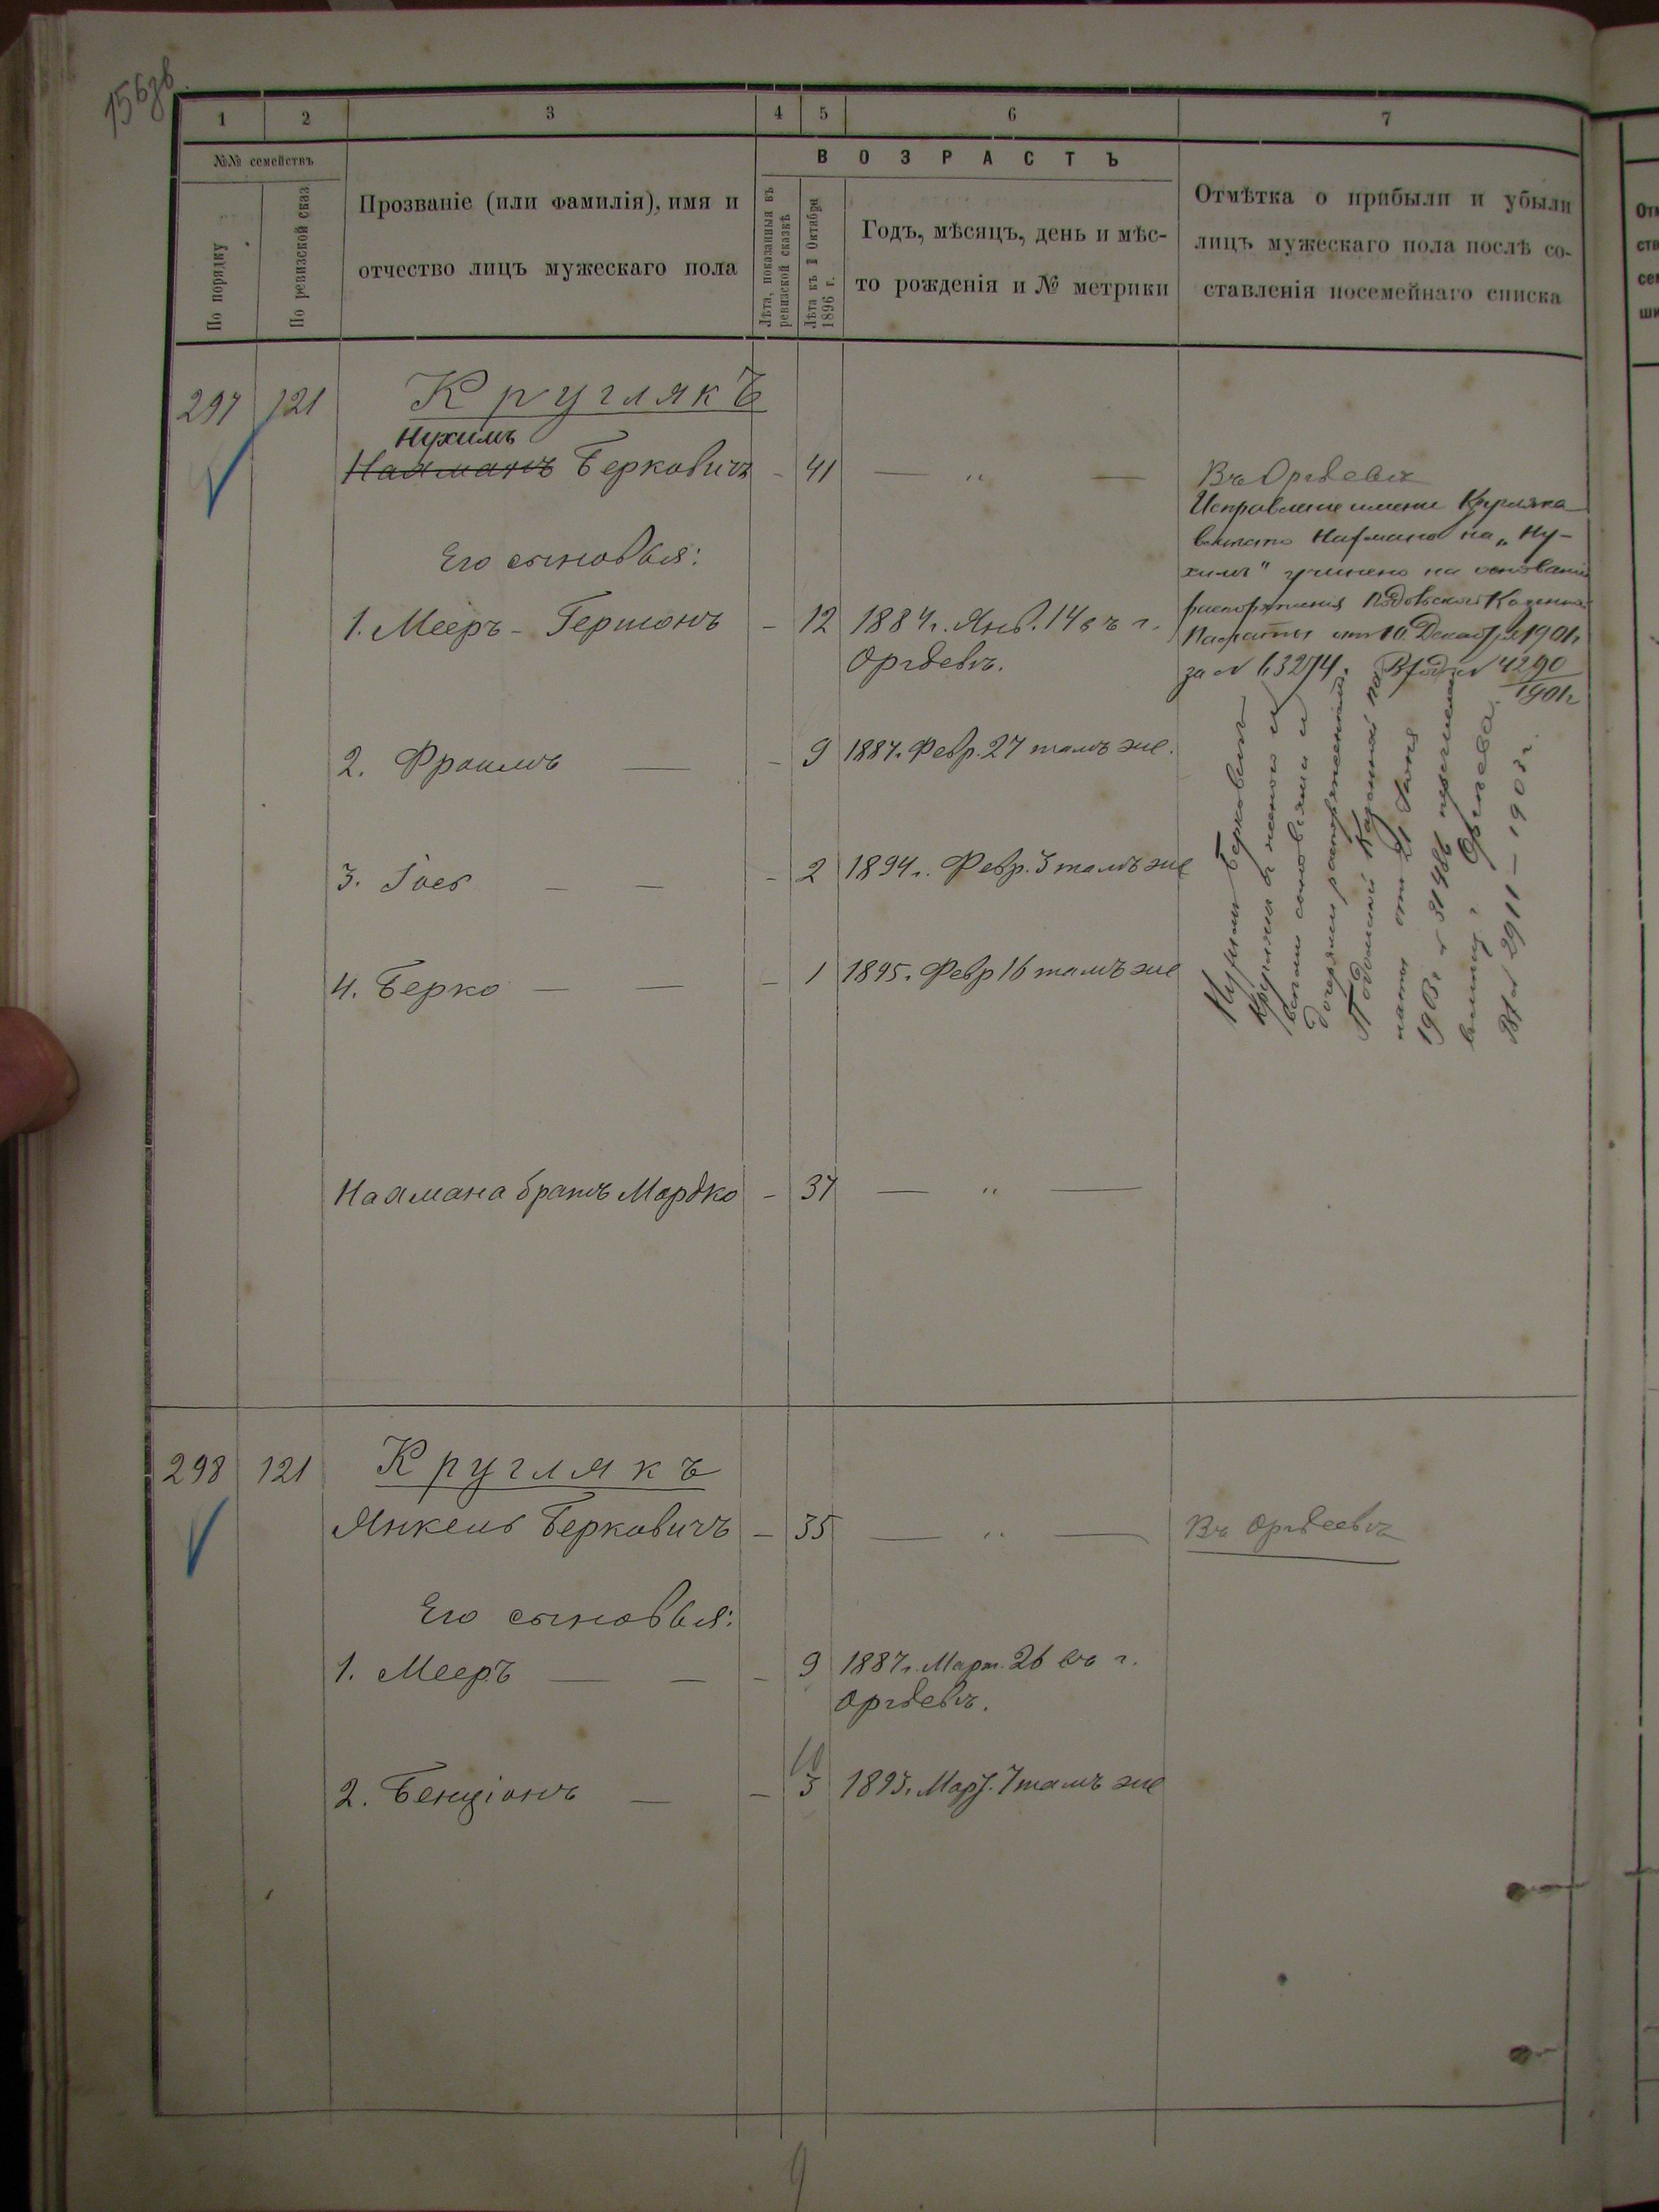 156 зв
1 2 3 4 5 6 7
№№ семействъ
По порядку
По ревизской сказ
Прозваніе (или фамилія), имя и
отчество лицъ мужескаго пола
ВОЗРАСТЪ
Лѣта, показанныя въ
ревизской сказкѣ
Лѣта къ 1 Октября
1896 г.
Годъ, мѣсяцъ, день и мѣс-
то рожденія и № метрики
Отмѣтка о прибыли и убыли
лицъ мужескаго пола послѣ со-
ставленія посемейнаго списка
297 121 Круглякъ
Нухимъ
Нахманъ Берковичъ - 41 — " — Въ Оргѣевѣ
Исправленіе имени Кругляка
вмѣсто Нахмана на „Ну-
химъ" учинено на основаніи
распоряженія Подольской Казенной
Палаты отъ 10 Декабря 1901 г
за № 63274. Вход № 4290
1901 г
Его сыновья:
1. Мееръ - Гершонъ - 12 1884 г. Янв. 14 въ г.
Оргѣевѣ.
2. Фроимъ — - 9 1887. Февр. 27 тамъ же.
3. Іось — — - 2 1894 г. Февр. 3 тамъ же
4. Берко — — - 1 1895. Февр 16 тамъ же
Нухимъ Берковичъ
Круглякъ съ женою и
сыновьями и
дочерями распоряженіемъ
Подольской Казенной Па-
латы отъ 21 Іюня
1903 г № 31486
г. Оргѣева.
Вх № 2911 — 1903 г.
Нахмана братъ Мордко - 37 — " —
298 121 Круглякъ
Янкель Берковичъ - 35 — " — Въ Оргѣевѣ
Его сыновья:
1. Мееръ — — - 9 1887 г. Март. 26 въ г.
Оргѣевѣ.
2. Бенціонъ — - 3 1893. Мар. 7 тамъ же
9